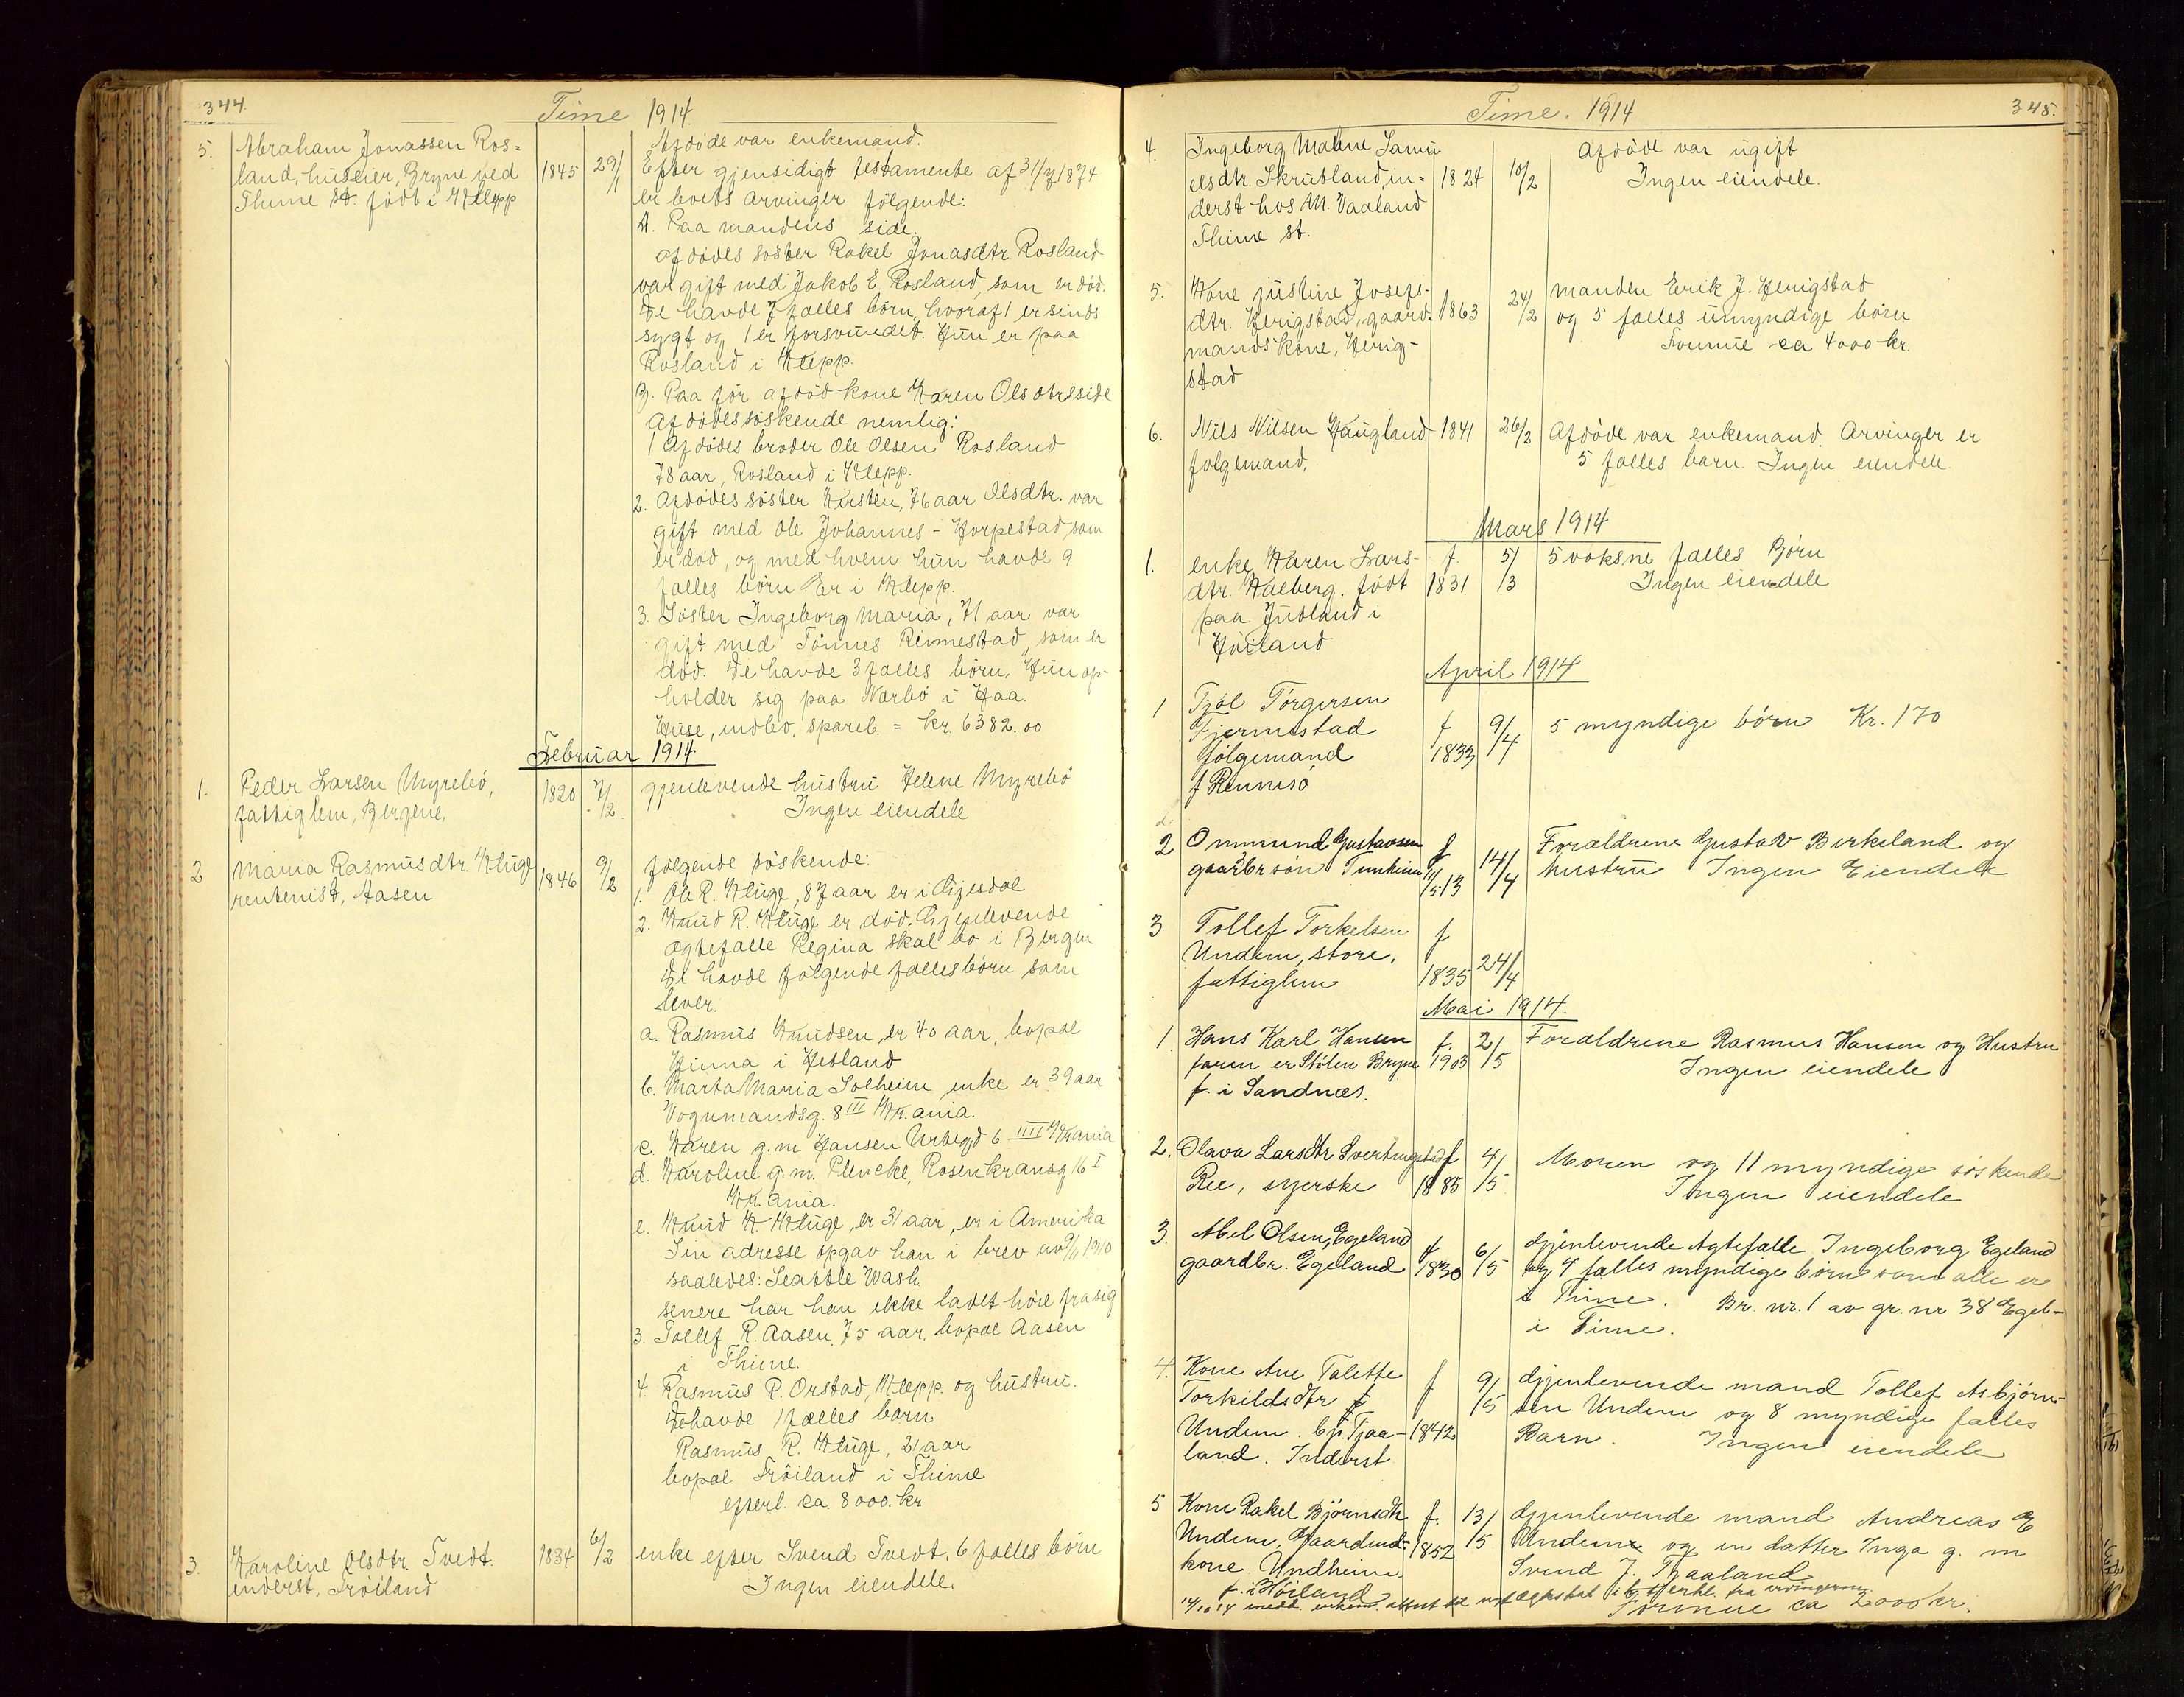 344.
Time 1914.
5. Abraham Jonassen Ros=
land, huseier, Bryne ved
Thime St. født i Klepp
1845 29/1
Afdøde var enkemand.
Efter gjensidigt testamente af 31/7 1874
er boets arvinger følgende:
A. Paa mandens side.
afdødes søster Rakel Jonasdtr. Rosland
var gift med Jakob E. Rosland, som er død.
De havde 7 fælles børn, hvoraf 1 er sinds
sygt og 1 er forsvundet. Hun er paa
Rosland i Klepp.
B. Paa før afdød kone Karen Olsdtrs side
afdødes søskende nemlig:
1 Afdødes broder Ole Olsen Rosland
78 aar, Rosland i Klepp.
2. Afdødes søster Kirsten, 76 aar Olsdtr. var
gift med Ole Johannes - Horpestad, som
er død, og med hvem hun havde 9
fælles børn Er i Klepp.
3. Søster Ingeborg Maria, 71 aar var
gift med Tønnes Rimestad, som er
død. De havde 3 fælles børn. Hun op-
holder sig paa Narbø i Haa.
Huse, indbo, spareb. = kr. 6382.00
Februar 1914
1. Peder Larsen Myrebø,
fattiglem, Bergene.
1820 7/2
gjenlevende hustru Helene Myrebø
Ingen eiendele
2 Maria Rasmusdtr. Kluge
rentenist, Aasen
1846 9/2
følgende søskende:
1. Ole R. Kluge, 87 aar er i Gjesdal
2. Knud R. Kluge er død. Gjenlevende
ægtefælle Regina skal bo i Bergen
De havde følgende fælles børn som
lever.
a. Rasmus Knudsen, er 40 aar, bopæl
Hinna i Hetland
b. Marta Maria Solheim enke er 39 aar
Vognmandsg. 8 III Kr.ania.
c. Karen g.m. Hansen Urbegd 6 IIII Krania
d. Karoline g.m. Plencke, Rosenkransg 16 I
Kr.ania.
e. Knud K Kluge, er 31 aar, er i Amerika
Sin adresse opgav han i brev av 9/11 1910
saaledes: Seattle Wash.
senere har han ikke ladet høre fra sig
3. Tollef R. Aasen, 75 aar, bopæl Aasen
i Thime.
4. Rasmus R. Orstad, Klepp. og hustru.
De havde 1 fælles barn
Rasmus R. Kluge, 21 aar
bopæl Frøiland i Thime
efterl. ca. 8000. kr
3. Karoline Olsdtr. Tvedt.
inderst, Frøiland
1834 6/2
enke efter Svend Tvedt. 6 fælles børn
Ingen eiendele.
Time. 1914
345.
4. Ingeborg Maline Samu
elsdtr. Skrudland, in=
derst hos M. Vaaland
Thime st.
1824 10/2
Afdøde var ugift
Ingen eiendele.
5. Kone Justine Josefs-
dtr. Herigstad, gaard
mandskone, Herig-
stad
1863 24/2
manden Erik J. Herigstad
og 5 fælles umyndige børn
Formue ca 4000 kr.
6. Nils Nilsen Haugland
følgemand,
1841 26/2
Afdøde var enkemand. Arvinger er
5 fælles barn. Ingen eiendele.
Mars 1914
1. enke Karen Lars-
dtr. Kalberg. født
paa Jutland i
Høiland
f. 1831 5/3
5 voksne fælles Børn
Ingen eiendele
April 1914
1 Tjøl Torgersen
Fjermestad
følgemand
f Rennesø
f 1833 9/4
5 myndige børn Kr. 170
2 Ommund Gustavsen
gaardbr søn Tunheim
f 11/5 13 14/4
Forældrene Gustav Birkeland og
hustru Ingen Eiendele
3 Tollef Torkelsen
Undem, store,
fattiglem
f 1835 24/4
Mai 1914.
1. Hans Karl Hansen
faren er Stølen Bryne
f. i Sandnæs.
f. 1903 2/5
Forældrene Rasmus Hansen og Hustru
Ingen eiendele
2. Olava Larsdtr Svertingstad
Ree, syerske
f 1885 4/5
Moren og 11 myndige søskende
Ingen eiendele
3. Abel Olsen, Egeland
gaardbr. Egeland
f 1830 6/5
Gjenlevende Ægtefælle Ingeborg Egeland
og 9 fælles myndige børn som alle er
i Time. Br. nr. 1 av gr. nr 38 Egel-
i Time.
4. Kone Ane Talette
Torkildsdtr
Undem. bp. Tjaa-
land. Inderst
f 1842 9/5
Gjenlevende mand Tollef Asbjørn-
sen Undem og 8 myndige fælles
Barn. Ingen eiendele
5 Kone Rakel Bjørnsdtr
Undem, Gaardmd-
kone. Undheim.
f. i Høiland
f. 1852 13/5
Gjenlevende mand Andreas E
Undem og en datter Inga g. m
Svend J. Tjaaland
Formue ca 2000 kr.
14/10 14 medd. enkem. attest
erkl. fra arvingerne.